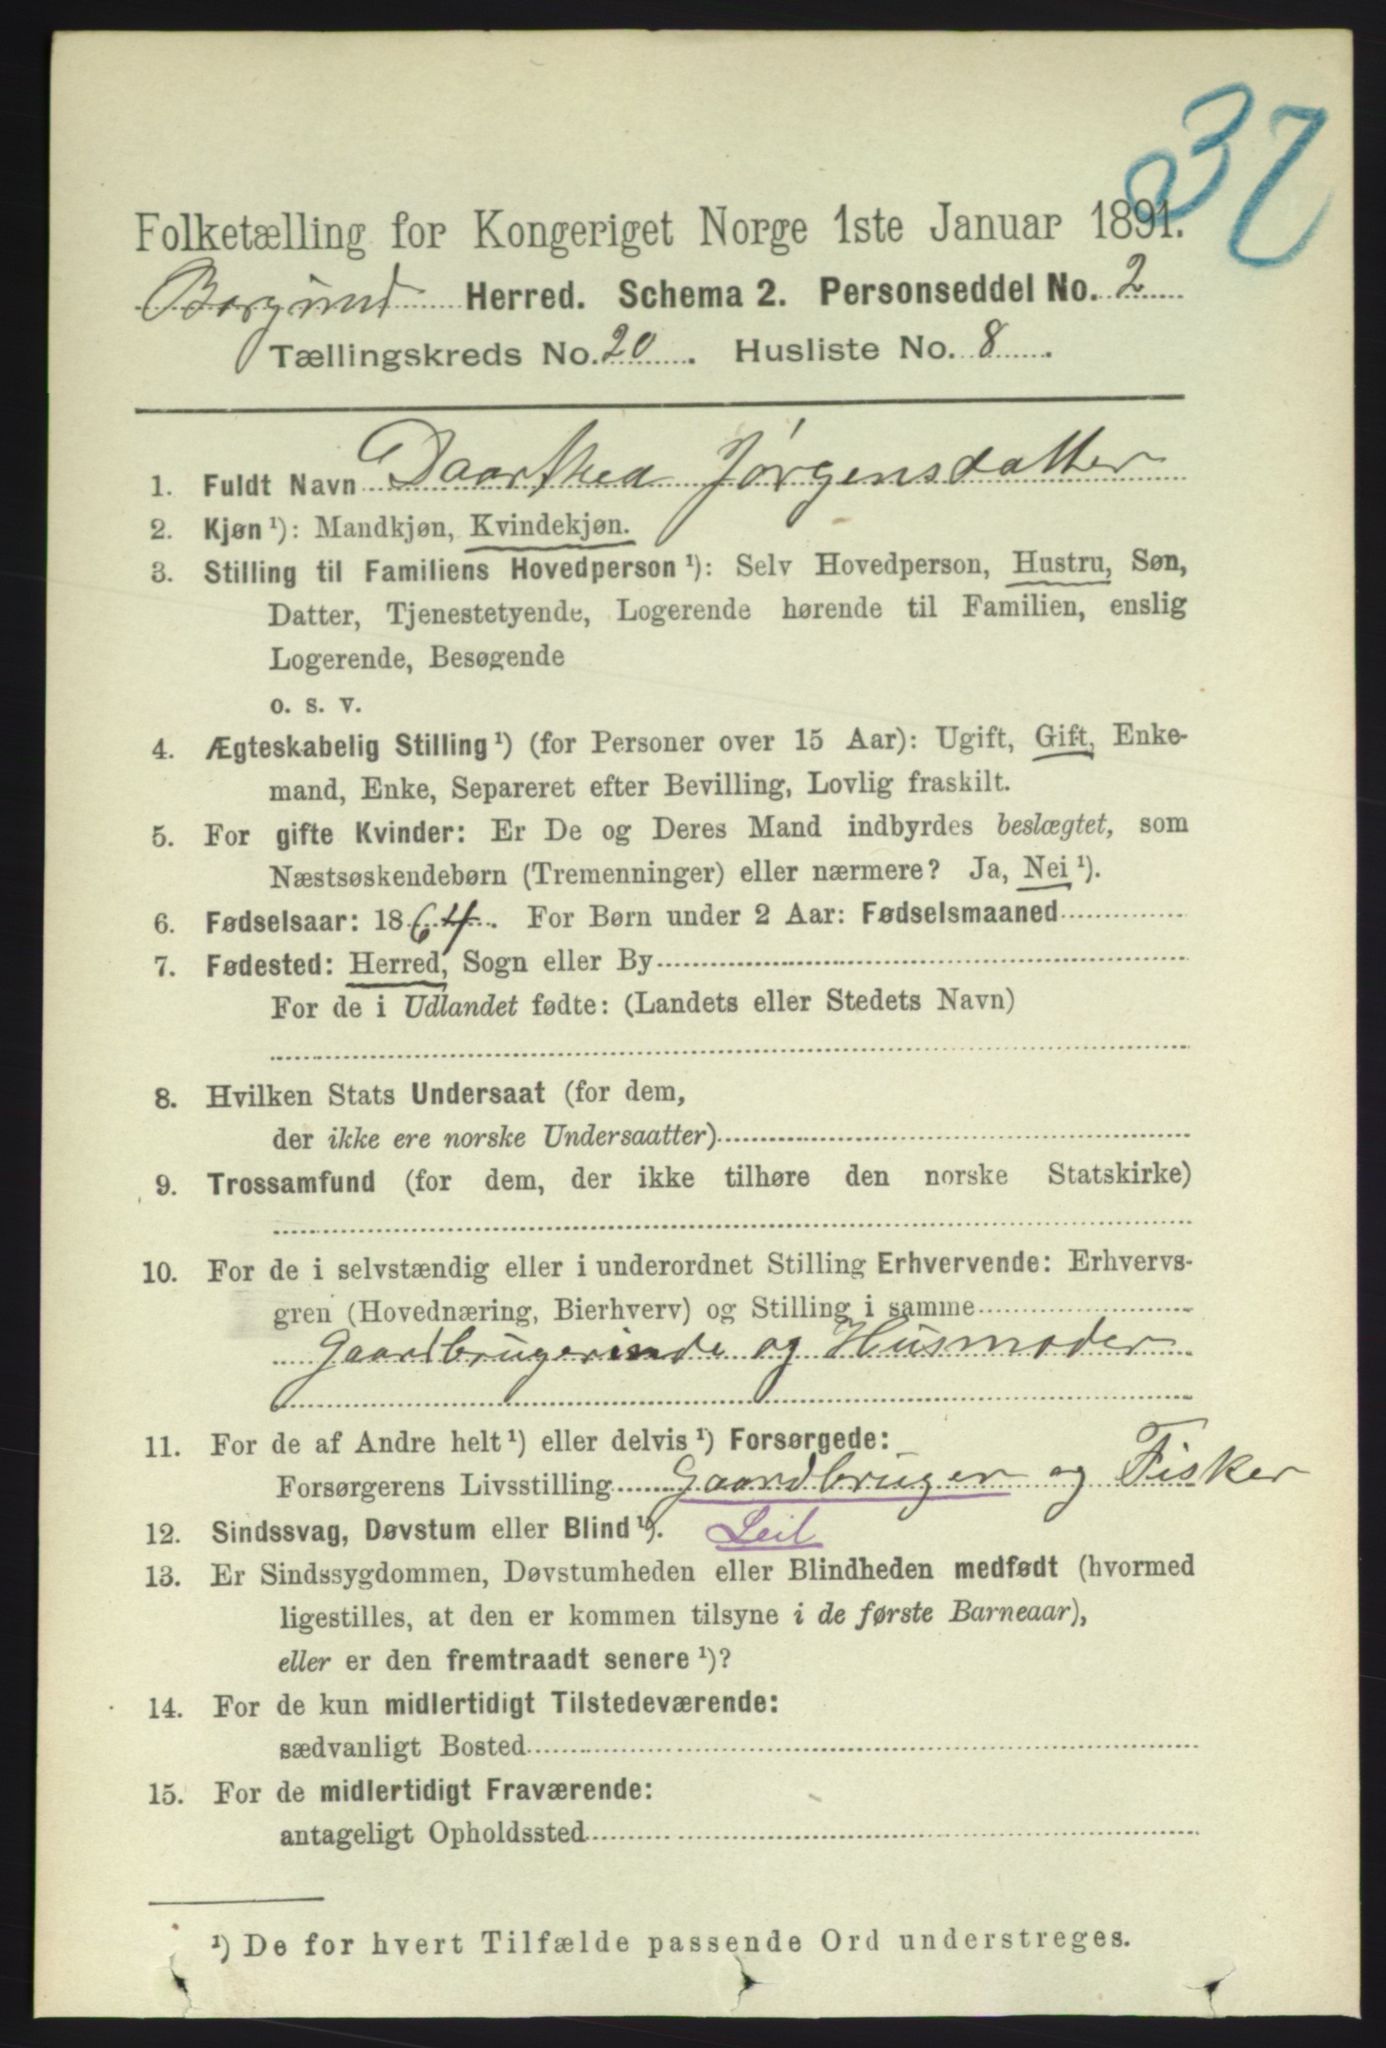 37
Folketælling for Kongeriget Norge 1ste Januar 1891.
Borgund Herred. Schema 2. Personseddel No. 2
Tællingskreds No. 20. Husliste No. 8.
1. Fuldt Navn Daarthea Jørgensdatter
2. Kjøn¹): Mandkjøn, Kvindekjøn.
3. Stilling til Familiens Hovedperson¹): Selv Hovedperson, Hustru, Søn,
Datter, Tjenestetyende, Logerende hørende til Familien, enslig
Logerende, Besøgende
o. s. v.
4. Ægteskabelig Stilling¹) (for Personer over 15 Aar): Ugift, Gift, Enke-
mand, Enke, Separeret efter Bevilling, Lovlig fraskilt.
5. For gifte Kvinder: Er De og Deres Mand indbyrdes beslægtet, som
Næstsøskendebørn (Tremenninger) eller nærmere? Ja, Nei¹).
6. Fødselsaar: 1864. For Børn under 2 Aar: Fødselsmaaned
7. Fødested: Herred, Sogn eller By
For de i Udlandet fødte: (Landets eller Stedets Navn)
8. Hvilken Stats Undersaat (for dem,
der ikke ere norske Undersaatter)
9. Trossamfund (for dem, der ikke tilhøre den norske Statskirke)
10. For de i selvstændig eller i underordnet Stilling Erhvervende: Erhvervs-
gren (Hovednæring, Bierhverv) og Stilling i samme
Gaardbrugerinde og Husmoder
11. For de af Andre helt¹) eller delvis¹) Forsørgede:
Forsørgerens Livsstilling Gaardbruger og Fisker
12. Sindssvag, Døvstum eller Blind¹). Leil
13. Er Sindssygdommen, Døvstumheden eller Blindheden medfødt (hvormed
ligestilles, at den er kommen tilsyne i de første Barneaar),
eller er den fremtraadt senere¹)?
14. For de kun midlertidigt Tilstedeværende:
sædvanligt Bosted
15. For de midlertidigt Fraværende:
antageligt Opholdssted
¹) De for hvert Tilfælde passende Ord understreges.